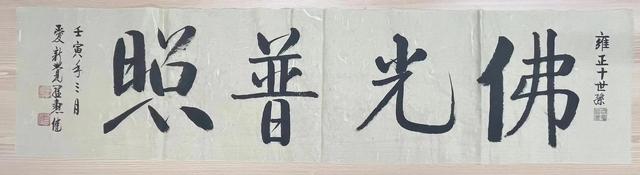 雍正十世孫
佛光普照
壬寅年三月
愛新覺羅